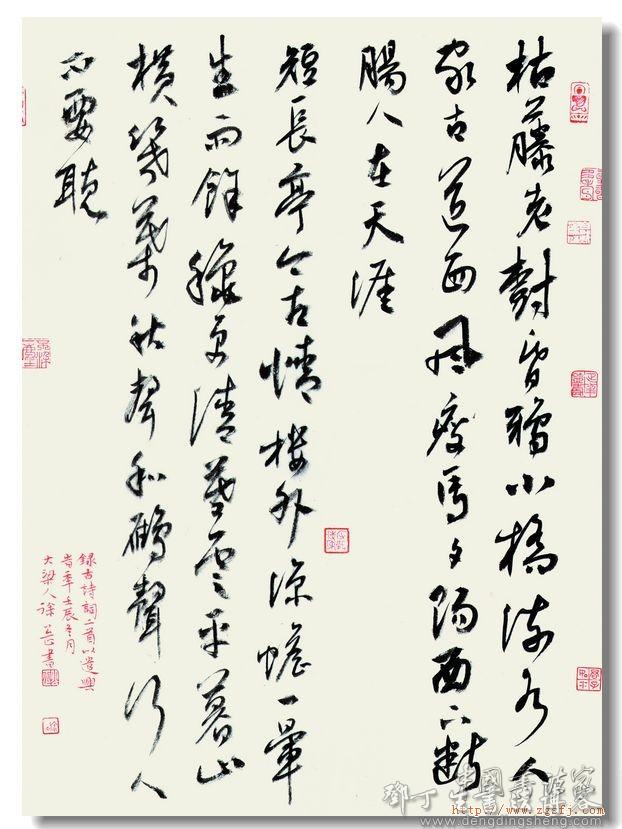 枯藤老樹昏鴉小橋流水人
家古道西風瘦馬夕陽西下斷
腸人在天涯
短長亭今古情樓外涼蟾一暈
生雨餘秋更清暮雲平暮山
橫幾葉秋聲和鴈聲行人
不要聽
録古詩詞二首以遣興
壬辰冬月
大梁人徐書
http://www.zgsfj.com
www.dengdingsheng.com